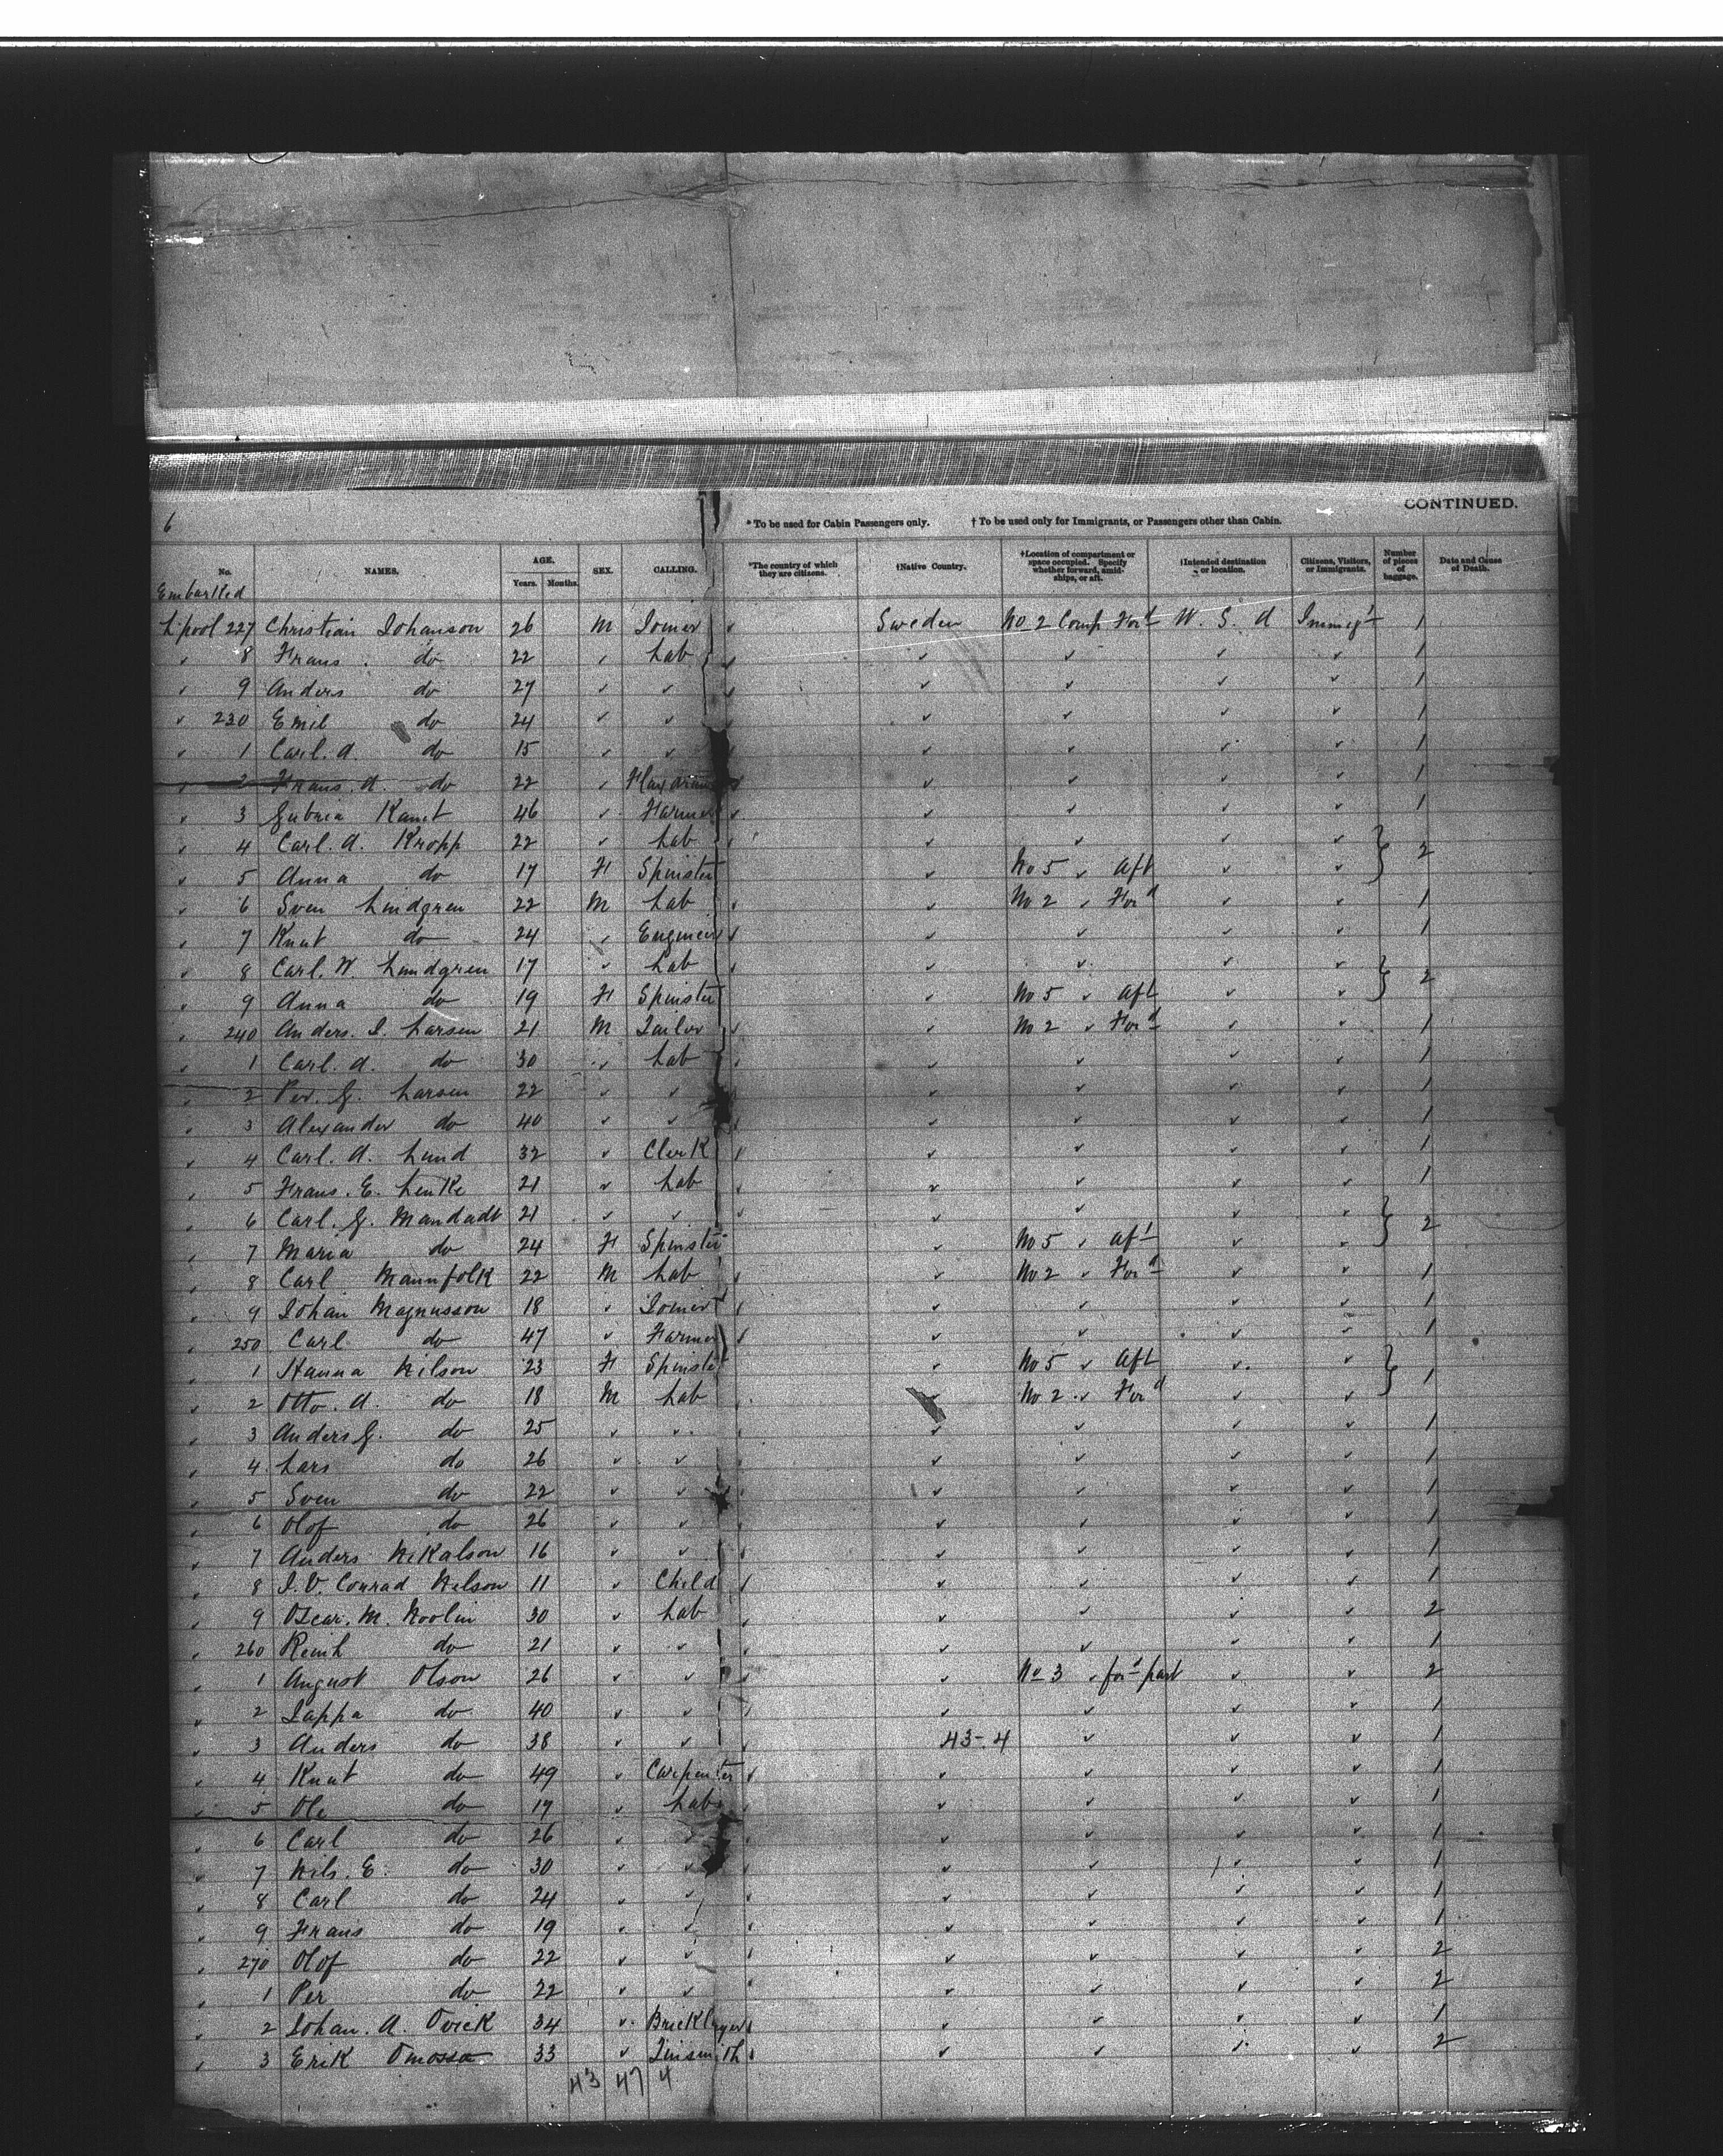 CONTINUED.
6 * To be used for Cabin Passengers only. † To be used only for Immigrants, or Passengers other than Cabin.
No. NAMES. AGE. Years. Months. SEX. CALLING. *The country of which they are citizens. †Native Country. †Location of compartment or space occupied. Specify whether forward, amidships, or aft. †Intended destination or location. Citizens, Visitors, or Immigrants. Number of pieces of baggage. Date and Cause of Death.
Embarked
L'pool 227 Christian Johanson 26 M Joiner Sweden No 2 Comp For'd U. S. A Immigt 1
✓ 8 Frans do 22 ✓ Lab ✓ ✓ ✓ ✓ 1
✓ 9 Anders do 27 ✓ ✓ ✓ ✓ ✓ ✓ 1
✓ 230 Emil do 24 ✓ ✓ ✓ ✓ ✓ ✓ 1
✓ 1 Carl. A. do 15 ✓ ✓ ✓ ✓ ✓ ✓ 1
✓ 2 Frans. A. do 22 ✓ ✓ ✓ ✓ ✓ 1
✓ 3 Kanst 46 ✓ Farmer ✓ ✓ ✓ ✓ 1
✓ 4 Carl. A. Kropp 22 ✓ Lab ✓ ✓ ✓ ✓ } 2
✓ 5 Anna do 17 F Spinster ✓ No 5 ✓ Aft ✓ ✓
✓ 6 Sven Lindgren 22 M Lab ✓ No 2 ✓ For'd ✓ ✓ 1
✓ 7 Knut do 24 ✓ Engineer ✓ ✓ ✓ ✓ 1
✓ 8 Carl. W. Lundgren 17 ✓ Lab ✓ ✓ ✓ ✓ } 2
✓ 9 Anna do 19 F Spinster ✓ No 5 ✓ Aft ✓ ✓
✓ 240 Anders. J. Larsen 21 M Tailor ✓ No 2 ✓ For'd ✓ ✓ 1
✓ 1 Carl. A. do 30 ✓ Lab ✓ ✓ ✓ ✓ 1
✓ 2 Per. G. Larsen 22 ✓ ✓ ✓ ✓ ✓ ✓ 1
✓ 3 Alexander do 40 ✓ ✓ ✓ ✓ ✓ ✓ 1
✓ 4 Carl. A. Lund 32 ✓ Clerk ✓ ✓ ✓ ✓ 1
✓ 5 Frans. E. Linke 21 ✓ Lab ✓ ✓ ✓ ✓ 1
✓ 6 Carl. G. Mandadt 21 ✓ ✓ ✓ ✓ ✓ ✓ } 2
✓ 7 Maria do 24 F Spinster ✓ No 5 ✓ Aft ✓ ✓
✓ 8 Carl Mannfolk 22 M Lab ✓ No 2 ✓ For'd ✓ ✓ 1
✓ 9 Johan Magnusson 18 ✓ Joiner ✓ ✓ ✓ ✓ 1
✓ 250 Carl do 47 ✓ Farmer ✓ ✓ ✓ ✓ 1
✓ 1 Hanna Nilson 23 F Spinster ✓ No 5 ✓ Aft ✓ ✓ } 1
✓ 2 Otto. A. do 18 M Lab ✓ No 2 ✓ For'd ✓ ✓
✓ 3 Anders G. do 25 ✓ ✓ ✓ ✓ ✓ ✓ 1
✓ 4 Lars do 26 ✓ ✓ ✓ ✓ ✓ ✓ 1
✓ 5 Sven do 22 ✓ ✓ ✓ ✓ ✓ ✓ 1
✓ 6 Olof do 26 ✓ ✓ ✓ ✓ ✓ ✓ 1
✓ 7 Anders Nikalson 16 ✓ ✓ ✓ ✓ ✓ ✓ 1
✓ 8 J. V. Conrad Nelson 11 ✓ Child ✓ ✓ ✓ ✓ 1
✓ 9 Oscar. M. Noolin 30 ✓ Lab ✓ ✓ ✓ ✓ 2
✓ 260 Reinh do 21 ✓ ✓ ✓ ✓ ✓ ✓ 1
✓ 1 August Olson 26 ✓ ✓ ✓ No 3 ✓ for'd part ✓ ✓ 2
✓ 2 Jappa do 40 ✓ ✓ ✓ ✓ ✓ ✓ 1
✓ 3 Anders do 38 ✓ ✓ 43-4 ✓ ✓ ✓ 1
✓ 4 Knut do 49 ✓ Carpenter ✓ ✓ ✓ ✓ 1
✓ 5 Ole do 17 ✓ Lab ✓ ✓ ✓ ✓ 1
✓ 6 Carl do 26 ✓ ✓ ✓ ✓ ✓ ✓ 1
✓ 7 Nils. E. do 30 ✓ ✓ ✓ ✓ ✓ ✓ 1
✓ 8 Carl do 24 ✓ ✓ ✓ ✓ ✓ ✓ 1
✓ 9 Frans do 19 ✓ ✓ ✓ ✓ ✓ ✓ 1
✓ 270 Olof do 22 ✓ ✓ ✓ ✓ ✓ ✓ 2
✓ 1 Per do 22 ✓ ✓ ✓ ✓ ✓ ✓ 2
✓ 2 Johan. A. Ovick 34 ✓ Bricklayer ✓ ✓ ✓ ✓ 1
✓ 3 Erik Omossa 33 ✓ Tinsmith ✓ ✓ ✓ ✓ 2
43 47 4